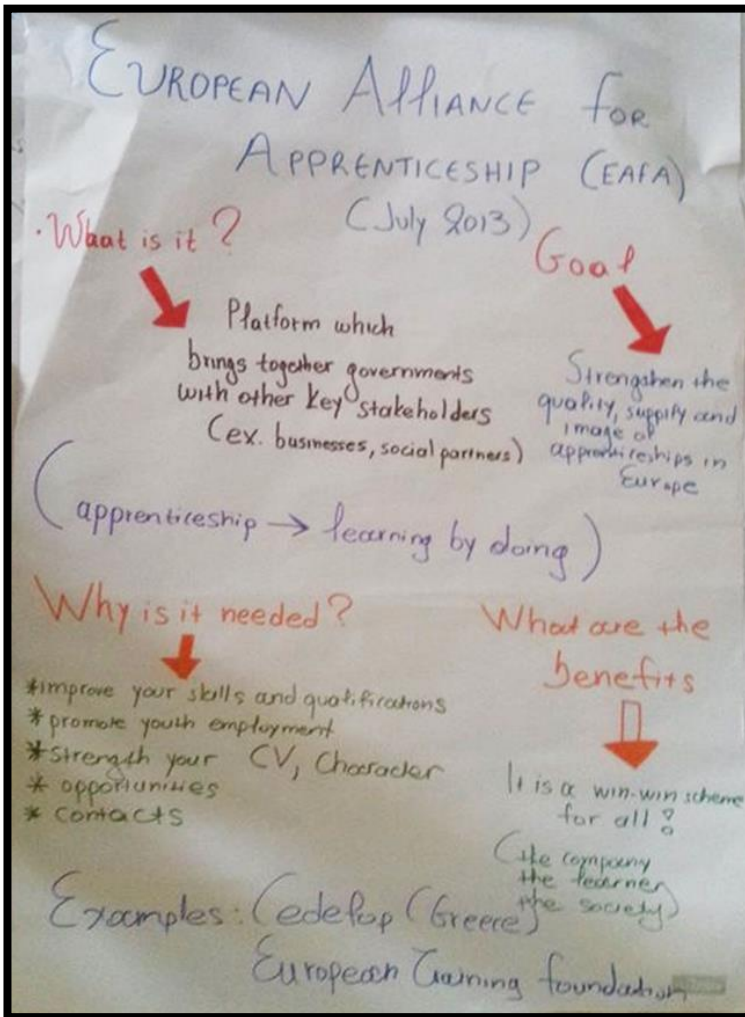 EUROPEAN ALLIANCE for
APPRENTICESHIP (EAFA)
(July 2013)
· What is it?
Platform which
brings together governments
with other key stakeholders
(ex. businesses, social partners)
Goal
Strengshen the
quality, supply and
image of
apprenticeships in
Europe
(apprenticeship → learning by doing)
Why is it needed?
*improve your skills and qualifications
* promote youth employment
*strength your CV, Character
* opportunities
* contacts
What are the
benefits
It is a win-win scheme
for all!
(the company
the learner
the society)
Examples: Cedefop (Greece)
European Training foundation